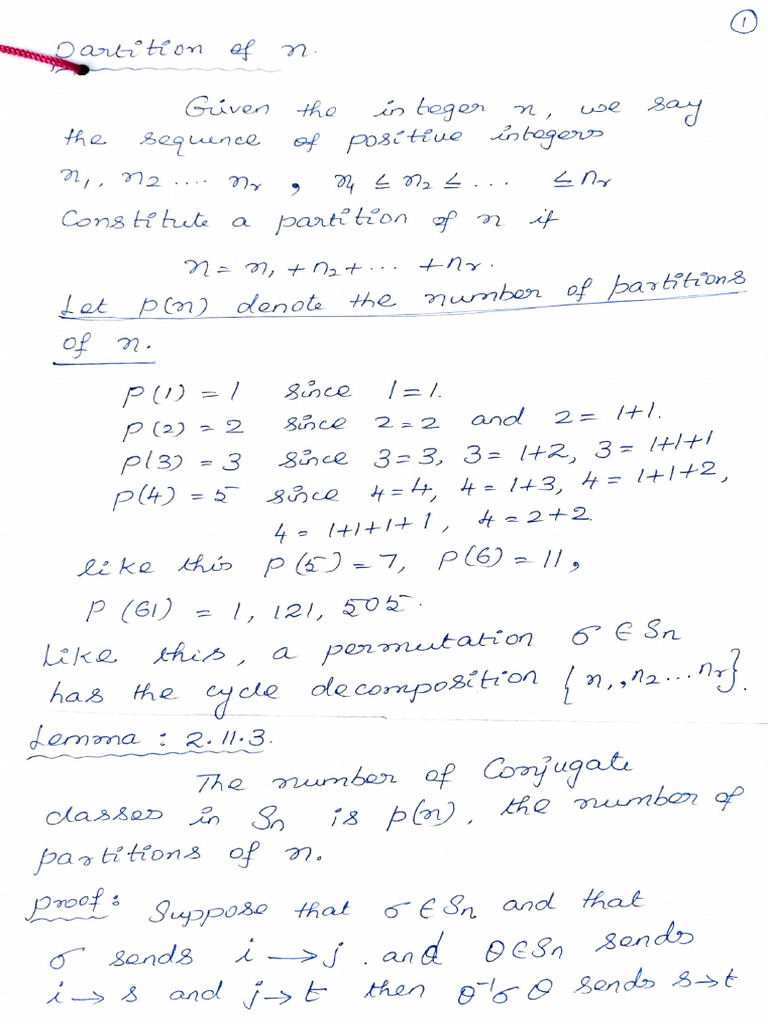 ①
Partition of n.
Given the integer n, we say
the sequence of positive integers
n₁, n₂ .... nᵣ, n₁ ≤ n₂ ≤ ... ≤ nᵣ
Constitute a partition of n if
n = n₁ + n₂ + ... + nᵣ.
Let p(n) denote the number of partitions
of n.
P(1) = 1 since 1 = 1.
P(2) = 2 since 2 = 2 and 2 = 1+1.
P(3) = 3 since 3 = 3, 3 = 1+2, 3 = 1+1+1
P(4) = 5 since 4 = 4, 4 = 1+3, 4 = 1+1+2,
4 = 1+1+1+1, 4 = 2+2.
like this P(5) = 7, P(6) = 11,
P(61) = 1, 121, 505.
Like this, a permutation σ ∈ Sn
has the cycle decomposition {n₁, n₂ ... nᵣ}.
Lemma : 2.11.3.
The number of Conjugate
classes in Sn is p(n), the number of
partitions of n.
Proof: Suppose that σ ∈ Sn and that
σ sends i → j. and θ ∈ Sn sends
i → s and j → t then θ⁻¹σθ sends s → t